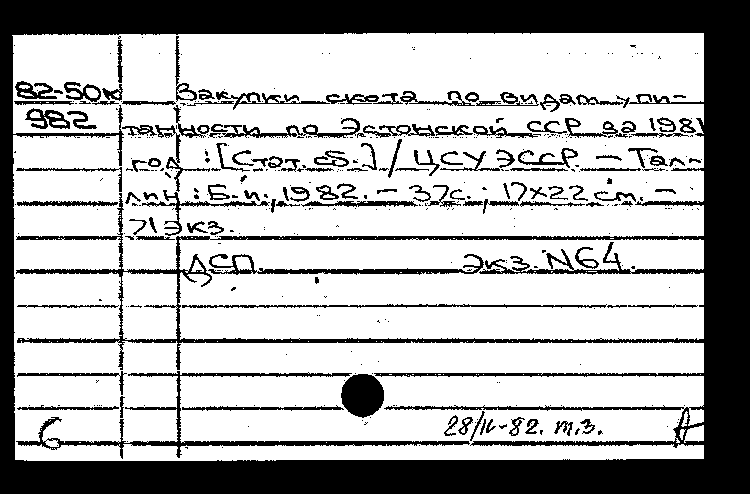 82-50к Закупки скота по видам упи-
982 танности по Эстонской ССР за 1981
год : [Стат. сб.] / ЦСУ ЭССР — Тал-
лин : Б. и., 1982. — 37с. ; 17×22 см. —
71 экз.
ДСП. Экз. N64.
28/IV-82. т.з.
6